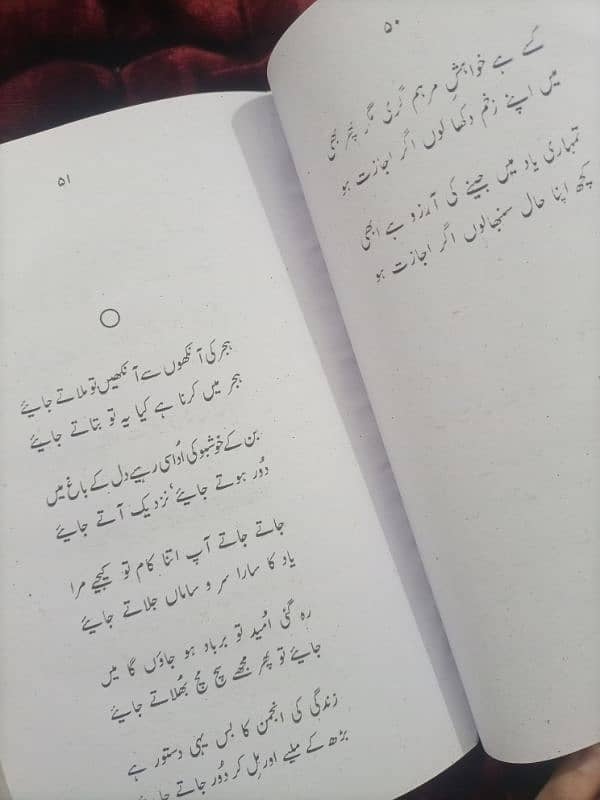 ۵۰
کسے ہے خواہشِ مرہم گری مگر پھر بھی
میں اپنے زخم دکھا لوں اگر اجازت ہو
تمہاری یاد میں جینے کی آرزو ہے ابھی
کچھ اپنا حال سنبھالوں اگر اجازت ہو
۵۱
ہجر کی آنکھوں سے آنکھیں تو ملاتے جائیے
ہجر میں کرنا ہے کیا یہ تو بتاتے جائیے
بن کے خوشبو کی اُداسی رہیے دل کے باغ میں
دُور ہوتے جائیے، نزدیک آتے جائیے
جاتے جاتے آپ اتنا کام تو کیجیے مرا
یاد کا سارا سر و ساماں جلاتے جائیے
رہ گئی اُمید تو برباد ہو جاؤں گا میں
جائیے تو پھر مجھے سچ مچ بھُلاتے جائیے
زندگی کی انجمن کا بس یہی دستور ہے
بڑھ کے ملیے اور مل کر دُور جاتے جائیے